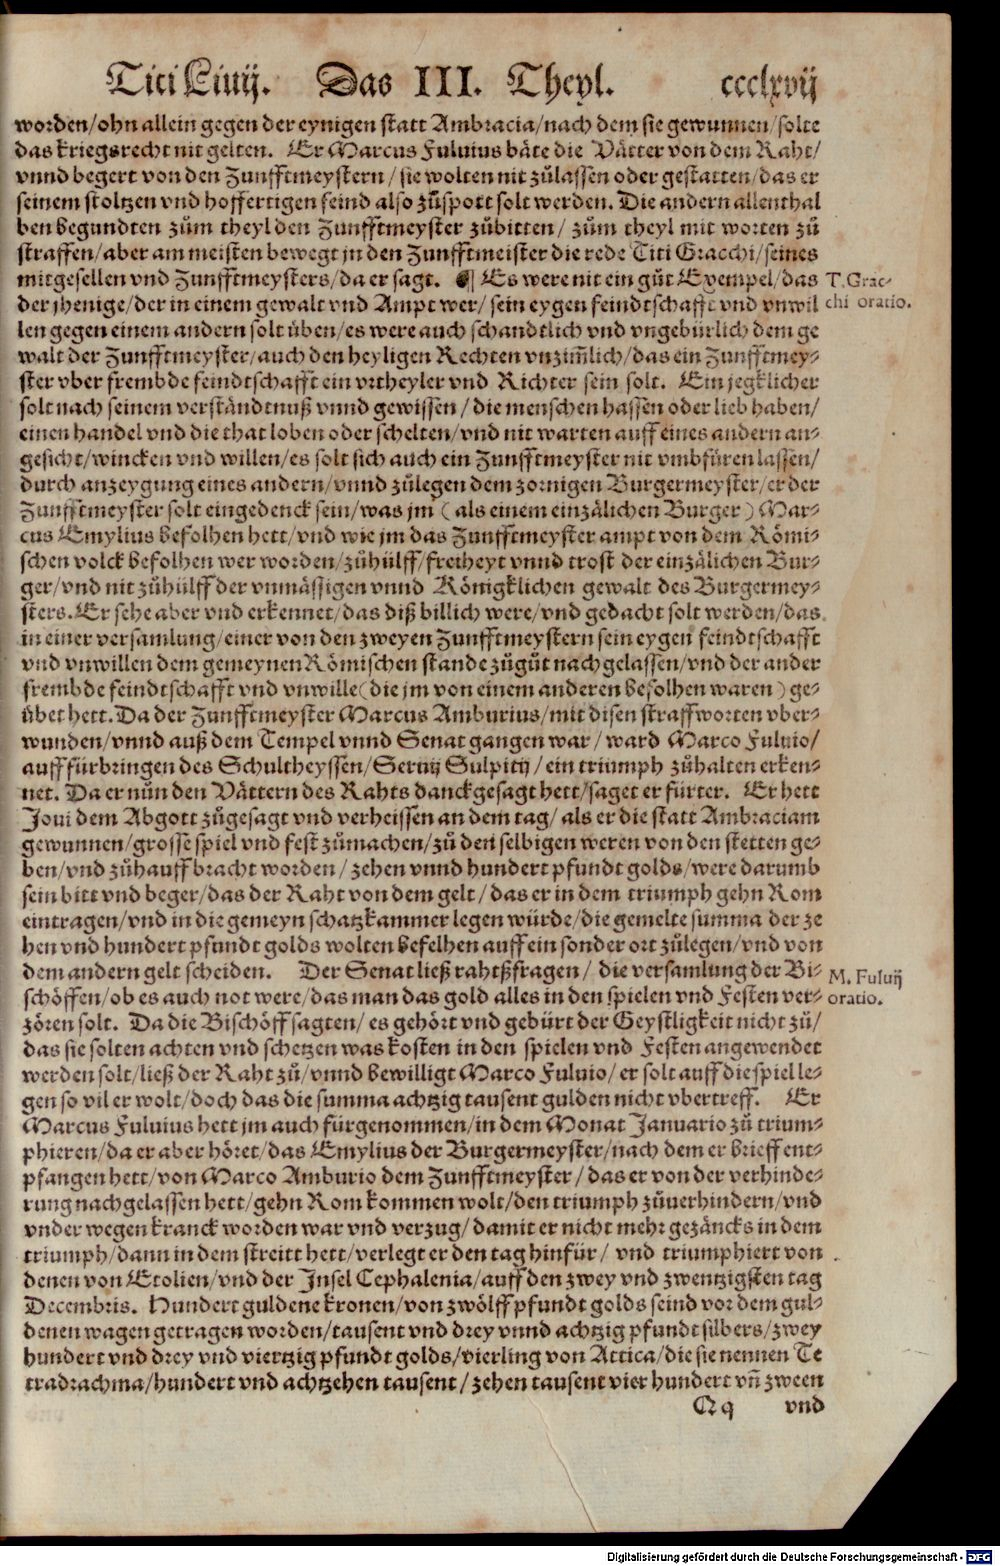 Titi Liuij. Das III. Theyl. ccclxvij
worden/ohn allein gegen der eynigen statt Ambracia/nach dem sie gewunnen/solte
das kriegsrecht nit gelten. Er Marcus Fuluius bäte die Vätter von dem Raht/
vnnd begert von den Zunfftmeystern/sie wolten nit zůlassen oder gestatten/das er
seinem stoltzen vnd hoffertigen feind also zůspott solt werden. Die andern allenthal
ben begundten zům theyl den Zunfftmeyster zůbitten/ zům theyl mit worten zů
straffen/aber am meisten bewegt jn den Zunfftmeister die rede Titi Gracchi/seines
mitgesellen vnd Zunfftmeysters/da er sagt. ¶ Es were nit ein gůt Exempel/das
T. Grac-
der jhenige/der in einem gewalt vnd Ampt wer/ sein eygen feindtschafft vnd vnwil
chi oratio.
len gegen einem andern solt üben/es were auch schandtlich vnd vngebürlich dem ge
walt der Zunfftmeyster/auch den heyligen Rechten vnzim̃lich/das ein Zunfftmey-
ster vber frembde feindtschafft ein vrtheyler vnd Richter sein solt. Ein jegklicher
solt nach seinem verständtnuß vnnd gewissen/die menschen hassen oder lieb haben/
einen handel vnd die that loben oder schelten/vnd nit warten auff eines andern an-
gesicht/wincken vnd willen/es solt sich auch ein Zunfftmeyster nit vmbfüren lassen/
durch anzeygung eines andern/vnnd zůlegen dem zornigen Burgermeyster/er der
Zunfftmeyster solt eingedenck sein/was jm (als einem einzälichen Burger) Mar-
cus Emylius befolhen hett/vnd wie jm das Zunfftmeyster ampt von dem Römi-
schen volck befolhen wer worden/zůhülff/freiheyt vnnd trost der einzälichen Bur-
ger/vnd nit zůhülff der vnmässigen vnnd Königklichen gewalt des Burgermey-
sters. Er sehe aber vnd erkennet/das diß billich were/vnd gedacht solt werden/das
in einer versamlung/einer von den zweyen Zunfftmeystern sein eygen feindtschafft
vnd vnwillen dem gemeynen Römischen stande zůgůt nachgelassen/vnd der ander
frembde feindtschafft vnd vnwille (die jm von einem anderen befolhen waren) ge-
übet hett. Da der Zunfftmeyster Marcus Amburius/mit disen straffworten vber-
wunden/vnnd auß dem Tempel vnnd Senat gangen war/ward Marco Fuluio/
auff fürbringen des Schultheyssen/Seruij Sulpitij/ein triumph zůhalten erken-
net. Da er nůn den Vättern des Rahts danckgesagt hett/saget er fürter. Er hett
Joui dem Abgott zůgesagt vnd verheissen an dem tag/als er die statt Ambraciam
gewunnen/grosse spiel vnd fest zůmachen/zů den selbigen weren von den stetten ge-
ben/vnd zůhauff bracht worden/zehen vnnd hundert pfundt golds/were darumb
sein bitt vnd beger/das der Raht von dem gelt/das er in dem triumph gehn Rom
eintragen/vnd in die gemeyn schatzkammer legen würde/die gemelte summa der ze
hen vnd hundert pfundt golds wolten befelhen auff ein sonder ort zůlegen/vnd von
dem andern gelt scheiden. Der Senat ließ rahtßfragen/die versamlung der Bi-
M. Fuluij
schöffen/ob es auch not were/das man das gold alles in den spielen vnd Festen ver-
oratio.
zören solt. Da die Bischöff sagten/es gehört vnd gebürt der Geystligkeit nicht zů/
das sie solten achten vnd schetzen was kosten in den spielen vnd Festen angewendet
werden solt/ließ der Raht zů/vnnd bewilligt Marco Fuluio/er solt auff die spiel le-
gen so vil er wolt/doch das die summa achtzig tausent gulden nicht vbertreff. Er
Marcus Fuluius hett jm auch fürgenommen/in dem Monat Januario zů trium-
phieren/da er aber höret/das Emylius der Burgermeyster/nach dem er brieff ent-
pfangen hett/von Marco Amburio dem Zunfftmeyster/das er von der verhinde-
rung nachgelassen hett/gehn Rom kommen wolt/den triumph zůuerhindern/vnd
vnder wegen kranck worden war vnd verzug/damit er nicht mehr gezäncks in dem
triumph/dann in dem streitt hett/verlegt er den tag hinfür/ vnd triumphiert von
denen von Etolien/vnd der Insel Cephalenia/auff den zwey vnd zwentzigsten tag
Decembris. Hundert guldene kronen/von zwölff pfundt golds seind vor dem gul-
denen wagen getragen worden/tausent vnd drey vnnd achtzig pfundt silbers/zwey
hundert vnd drey vnd viertzig pfundt golds/vierling von Attica/die sie nennen Te
tradrachma/hundert vnd achtzehen tausent/zehen tausent vier hundert vñ zween
Qq vnd
Digitalisierung gefördert durch die Deutsche Forschungsgemeinschaft - DFG